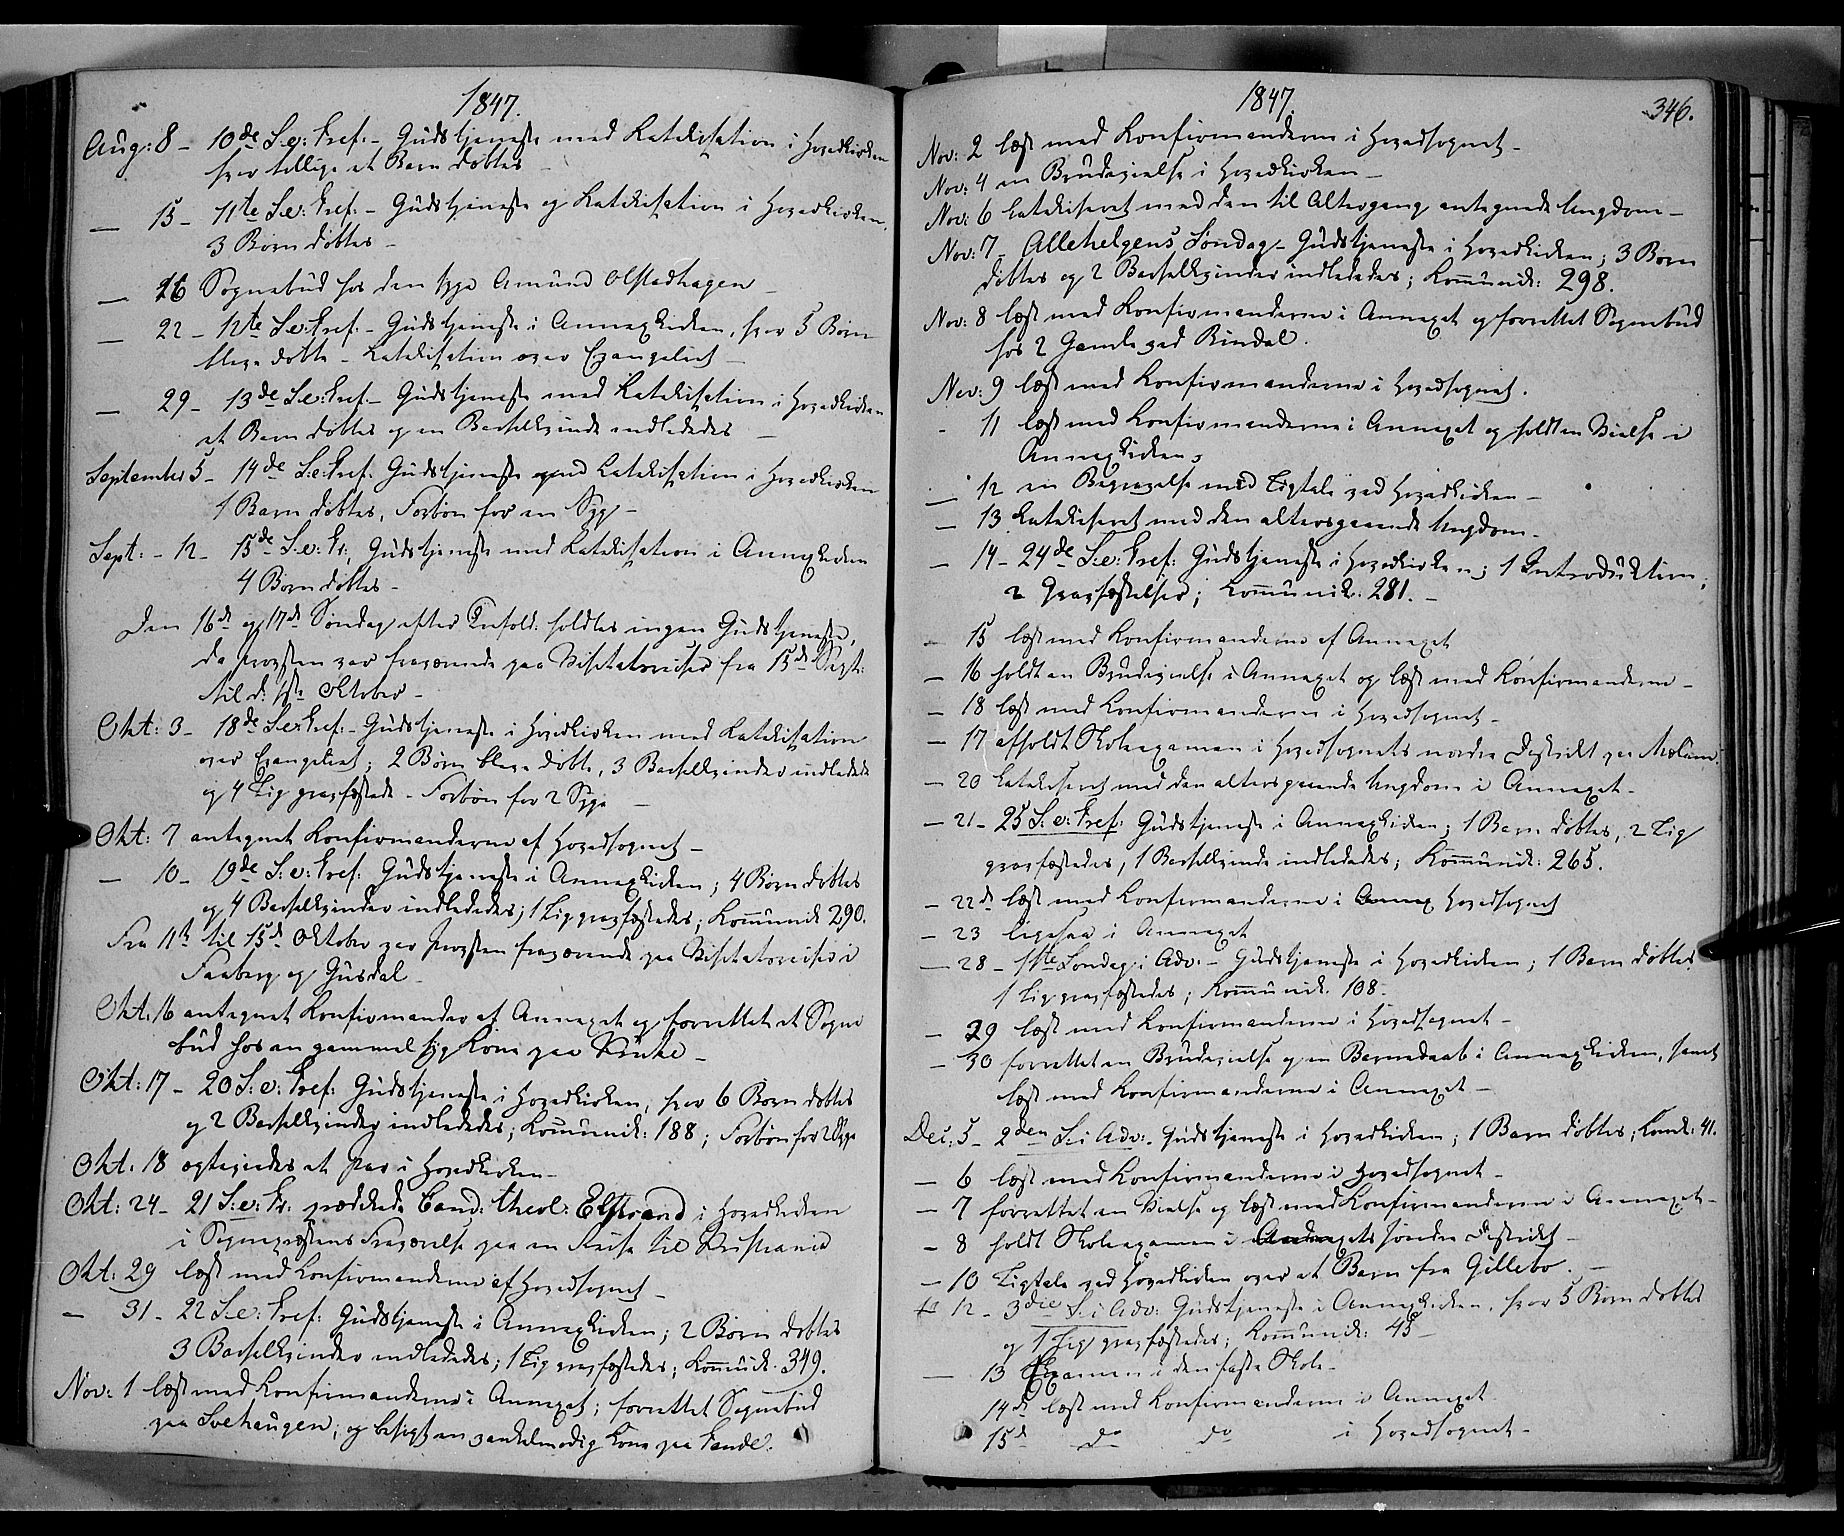 1847.
Aug: 8 - 10de S.e: Tref. - Gudstjeneste med Katekisation i Hovedkirken
hvor tillige et Barn døbtes -
— 15 - 11te S.e: Tref. - Gudstjeneste og Katekisation i Hovedkirken,
3 Børn døbtes -
— 16 Sognebud hos den syge Amund Olstadhagen -
— 22 - 12te S.e: Tref. - Gudstjeneste i Annexkirken, hvor 5 Børn
bleve døbte - Katekisation over Evangeliet -
— 29 - 13de S.e: Tref. - Gudstjeneste med Katekisation i Hovedkirken
et Barn døbtes og en Barselkvinde indlededes -
September 5 - 14de S.e: Tref. Gudstjeneste med Katekisation i Hovedkirken
1 Barn døbtes, Forbøn for en Syg -
Sept: - 12 - 15de S.e: Tr., Gudstjeneste med Katekisation i Annexkirken
4 Børn døbtes -
Den 16de og 17de Søndag efter Trefold: holdtes ingen Gudstjeneste,
da Provsten var fraværende paa Visitatsreiser fra 15de Sept:
til d: 1ste Oktober -
Okt: 3 - 18de S.e: Tref. - Gudstjeneste i Hovedkirken med Katekisation
over Evangeliet; 2 Børn bleve døbte, 3 Barselkvinder indledede
og 4 Lig gravfæstede - Forbøn for 2 Syge -
Okt: 7 antegnet Konfirmanderne af Hovedsognet -
— 10 - 19de S.e: Tref: Gudstjeneste i Annexkirken; 4 Børn døbtes
og 4 Barselkvinder indlededes; 1 Lig gravfæstedes; Kommunik 290.
Fra 11te til 15de Oktober var Provsten fraværende paa Visitatsreise i
Faaberg og Gusdal -
Okt: 16 antegnet Konfirmander af Annexet og forrettet et Sogne
bud hos en gammel syg Kone paa
Okt: 17 - 20 S.e: Tref: Gudstjeneste i Hovedkirken, hvor 6 Børn døbtes
og 2 Barselkvinder indlededes; Kommunik: 188; Forbøn for 2 Syge
Okt: 18 egteviedes et Par i Hovedkirken -
Okt: 24 - 21 S.e: Tr. prædikede Cand: theol: Elstrand i Hovedkirken
i Sogneprestens Fraværelse paa en Reise til Kristiania
Okt: 29 læst med Konfirmanderne af Hovedsognet -
— 31 - 22 S.e: Tref: Gudstjeneste i Annexkirken; 2 Børn døbtes
3 Barselkvinder indlededes; 1 Lig gravfæstedes; Kommunik. 349.
Nov: 1 læst med Konfirmanderne i Annexet; forrettet Sognebud
paa Svehaugen; og besøgt en vankelmodig Kone paa Sande.
1847.
346.
Nov: 2 læst med Konfirmanderne i Hovedsognet -
Nov: 4 en Brudevielse i Hovedkirken -
Nov: 6 katekiseret med den til Altergang antegnede Ungdom -
Nov: 7 - Allehelgens Søndag - Gudstjeneste i Hovedkirken; 3 Børn
døbtes og 2 Barselkvinder indlededes; Kommunik: 298.
Nov: 8 læst med Konfirmanderne i Annexet og forrettet Sognebud
hos 2 Gamle ved Rindal.
Nov: 9 læst med Konfirmanderne i Hovedsognet.
- 11 læst med Konfirmanderne i Annexet og holdt en Vielse i
Annexkirken,
— 12 en Begravelse med Ligtale ved Hovedkirken -
— 13 katekiseret med den altersgaaende Ungdom -
— 14 - 24de S.e: Tref: Gudstjeneste i Hovedkirken; 1 Introduktion;
2 Gravfæstelser; Kommunik: 281. -
- 15 læst med Konfirmanderne af Annexet
— 16 holdt en Brudevielse i Annexet og læst med Konfirmanderne -
— 18 læst med Konfirmanderne i Hovedsognet -
— 17 afholdt Skoleexamen i Hovedsognets nordre Distrikt paa
— 20 katekiseret med den altersgaaende Ungdom i Annexet -
— 21 - 25 S: e: Tref: Gudstjeneste i Annexkirken; 1 Barn døbtes, 2 Lig
gravfæstedes, 1 Barselkvinde indlededes; Kommunik: 265.
— 22de læst med Konfirmanderne i Annex Hovedsognet
— 23 ligesaa i Annexet
— 28 - 1ste Søndag i Adv: - Gudstjeneste i Hovedkirken; 1 Barn døbtes,
1 Lig gravfæstedes; Kommunik. 108.
— 29 læst med Konfirmanderne i Hovedsognet -
— 30 forrettet en Brudevielse og en Barnedaab i Annexkirken, samt
læst med Konfirmanderne i Annexet -
Dec. 5 - 2den S. i Adv: - Gudstjeneste i Hovedkirken; 1 Barn døbtes; Komk: 41.
— 6 læst med Konfirmanderne i Hovedsognet -
— 7 forrettet en Vielse og læst med Konfirmanderne i Annexet -
— 8 holdt Skoleexamen i Annexets søndre Distrikt -
— 10 Ligtale ved Hovedkirken over et Barn fra Gillebo. -
— 12 - 3die S. i Adv: Gudstjeneste i Annexkirken, hvor 5 Børn døbtes
og 1 Lig gravfæstedes; Kommunik: 45 -
— 13 Examen i den faste Skole -
14de læst med Konfirmanderne i Annexet
15de do do i Hovedsognet -